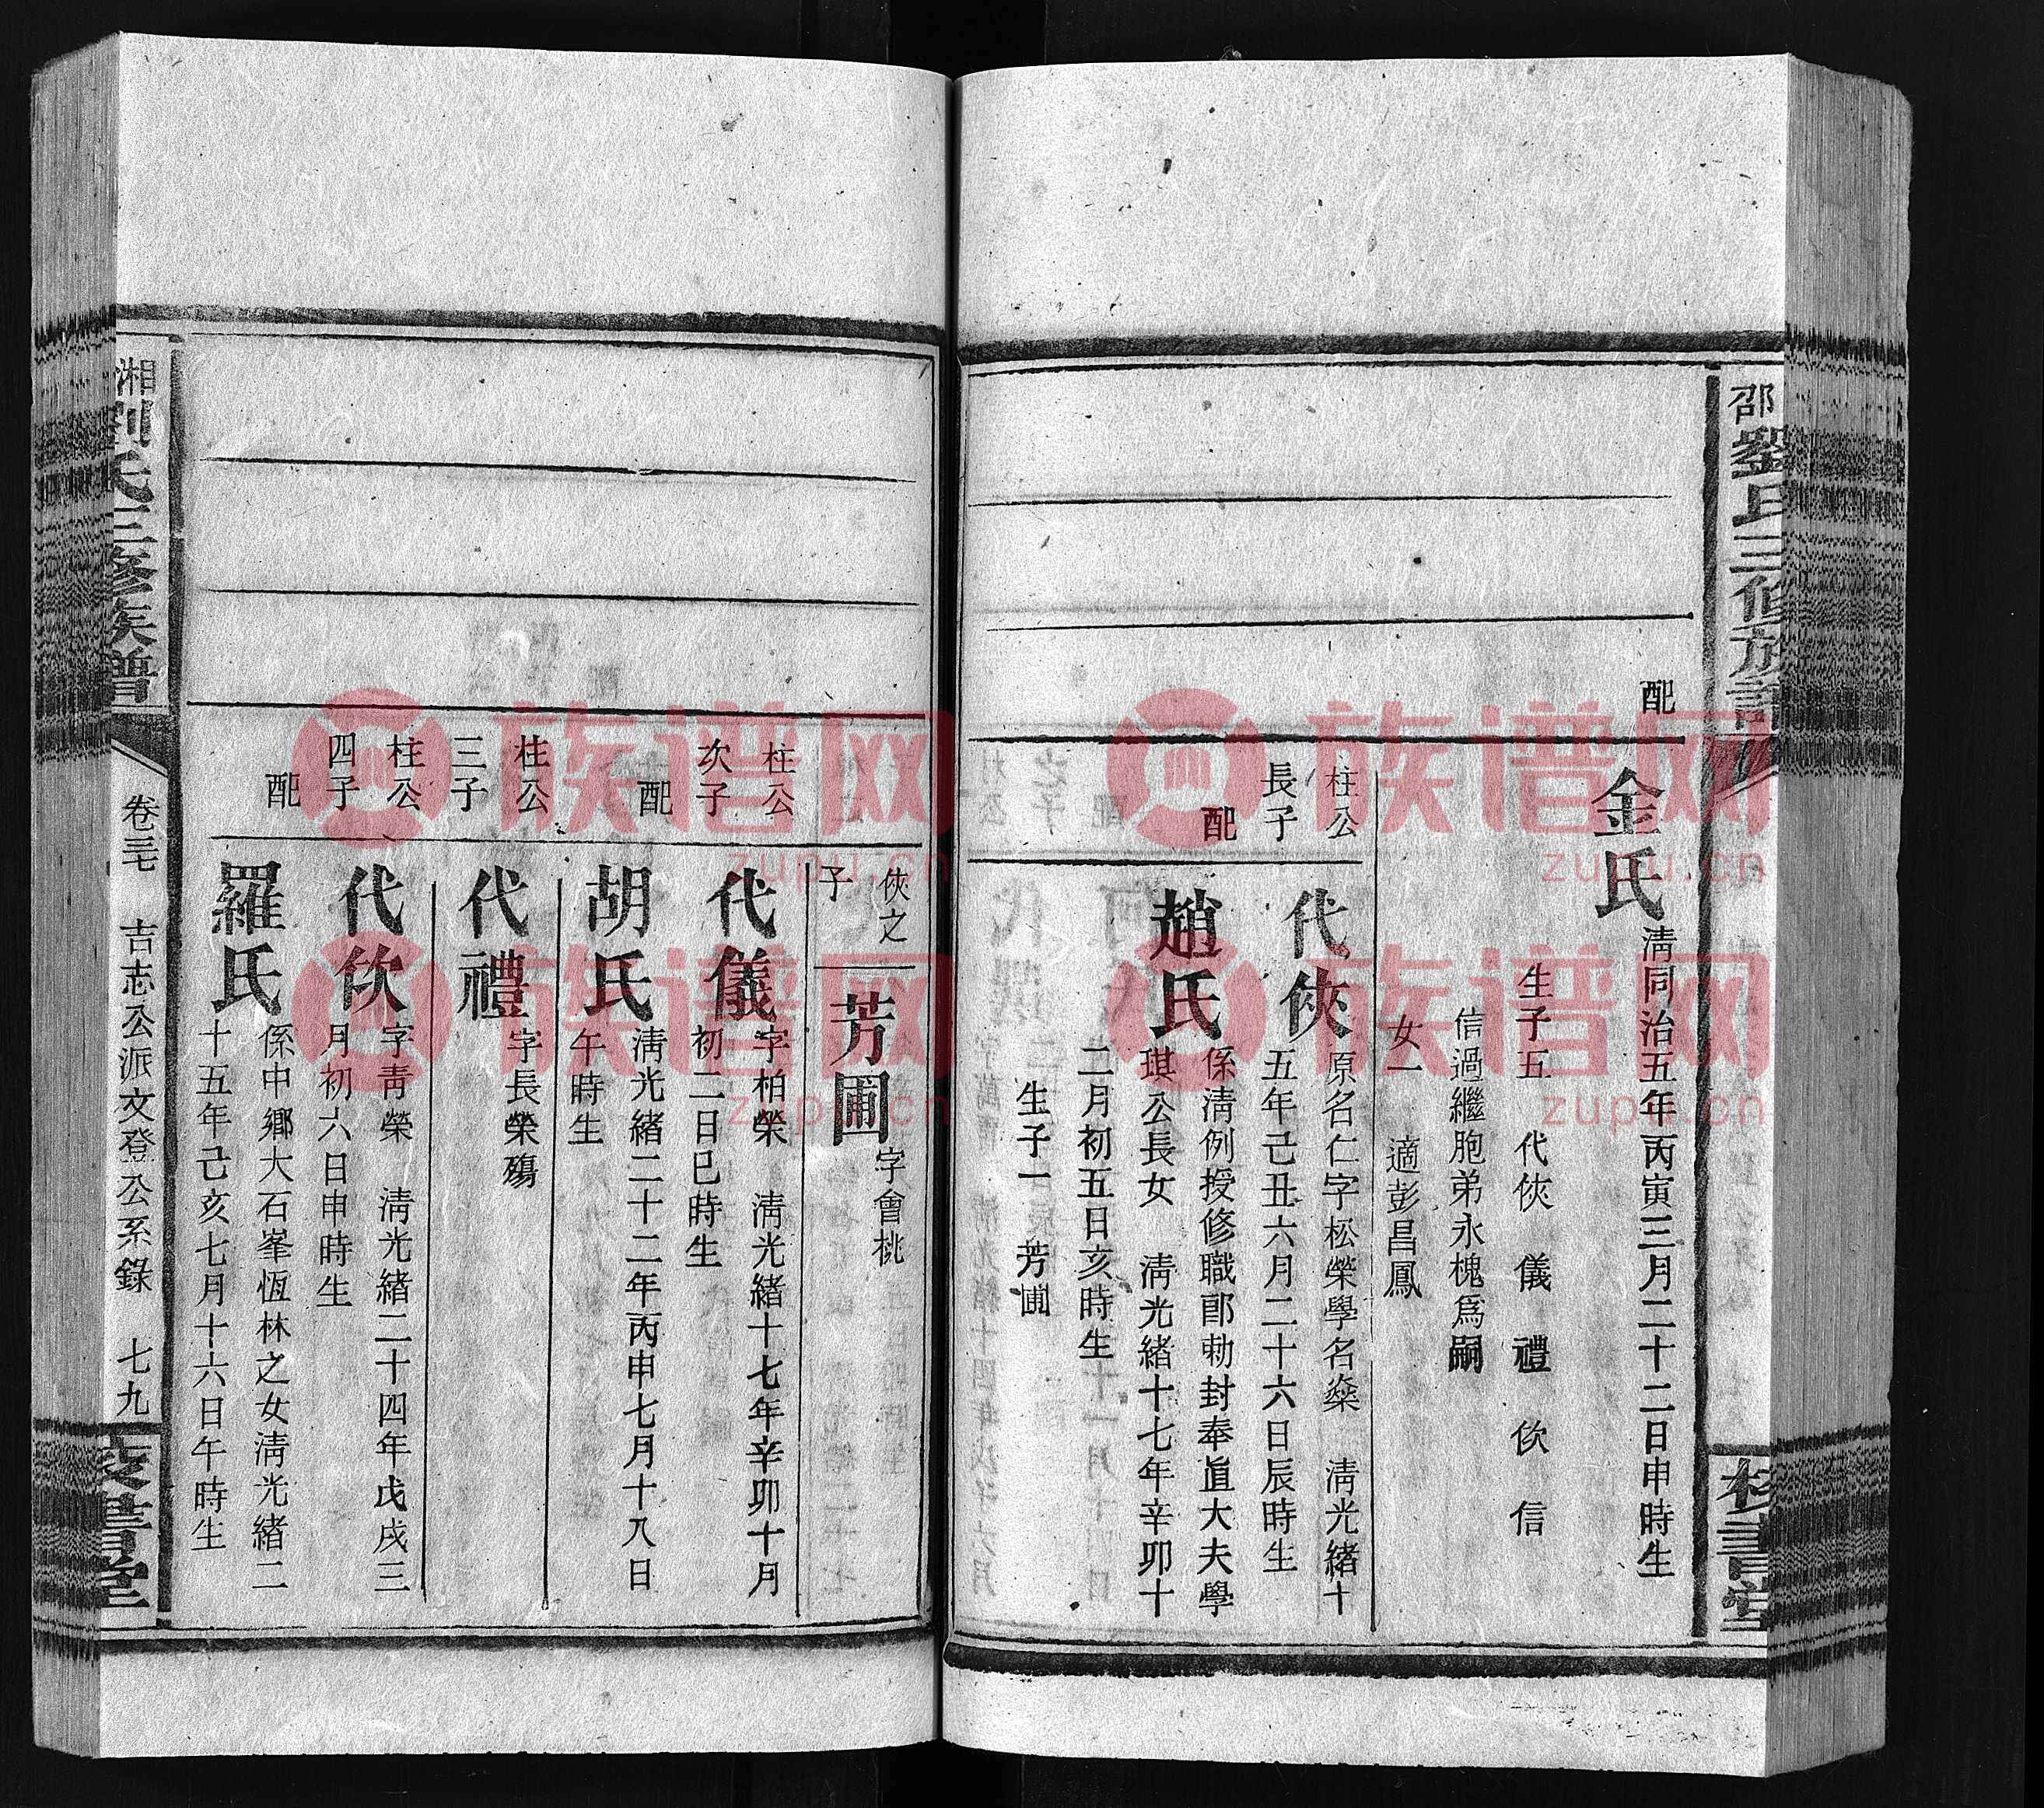 邵劉氏三修族譜
校書堂
配
金氏
清同治五年丙寅三月二十二日申時生
生子五 代俠 儀 禮 佽 信
信過繼胞弟永槐為嗣
女一 適彭昌鳳
柱公
長子
代俠
原名仁字松榮學名燊 清光緒十
五年己丑六月二十六日辰時生
係清例授修職郎勅封奉直大夫學
配
趙氏
琪公長女 清光緒十七年辛卯十
二月初五日亥時生
生子一 芳圃
俠之
子
芳圃
字會桃
柱公
次子
代儀
字柏榮 清光緒十七年辛卯十月
初二日巳時生
配
胡氏
清光緒二十二年丙申七月十八日
午時生
柱公
三子
代禮
字長榮殤
柱公
四子
代佽
字青榮 清光緒二十四年戊戌三
月初六日申時生
配
羅氏
係中鄉大石峯恆林之女清光緒二
十五年己亥七月十六日午時生
湘劉氏三修族譜
卷三七 吉志公派文登公系錄 七九
校書堂
族谱网
zupu.cn
族谱网
zupu.cn
族谱网
zupu.cn
族谱网
zupu.cn